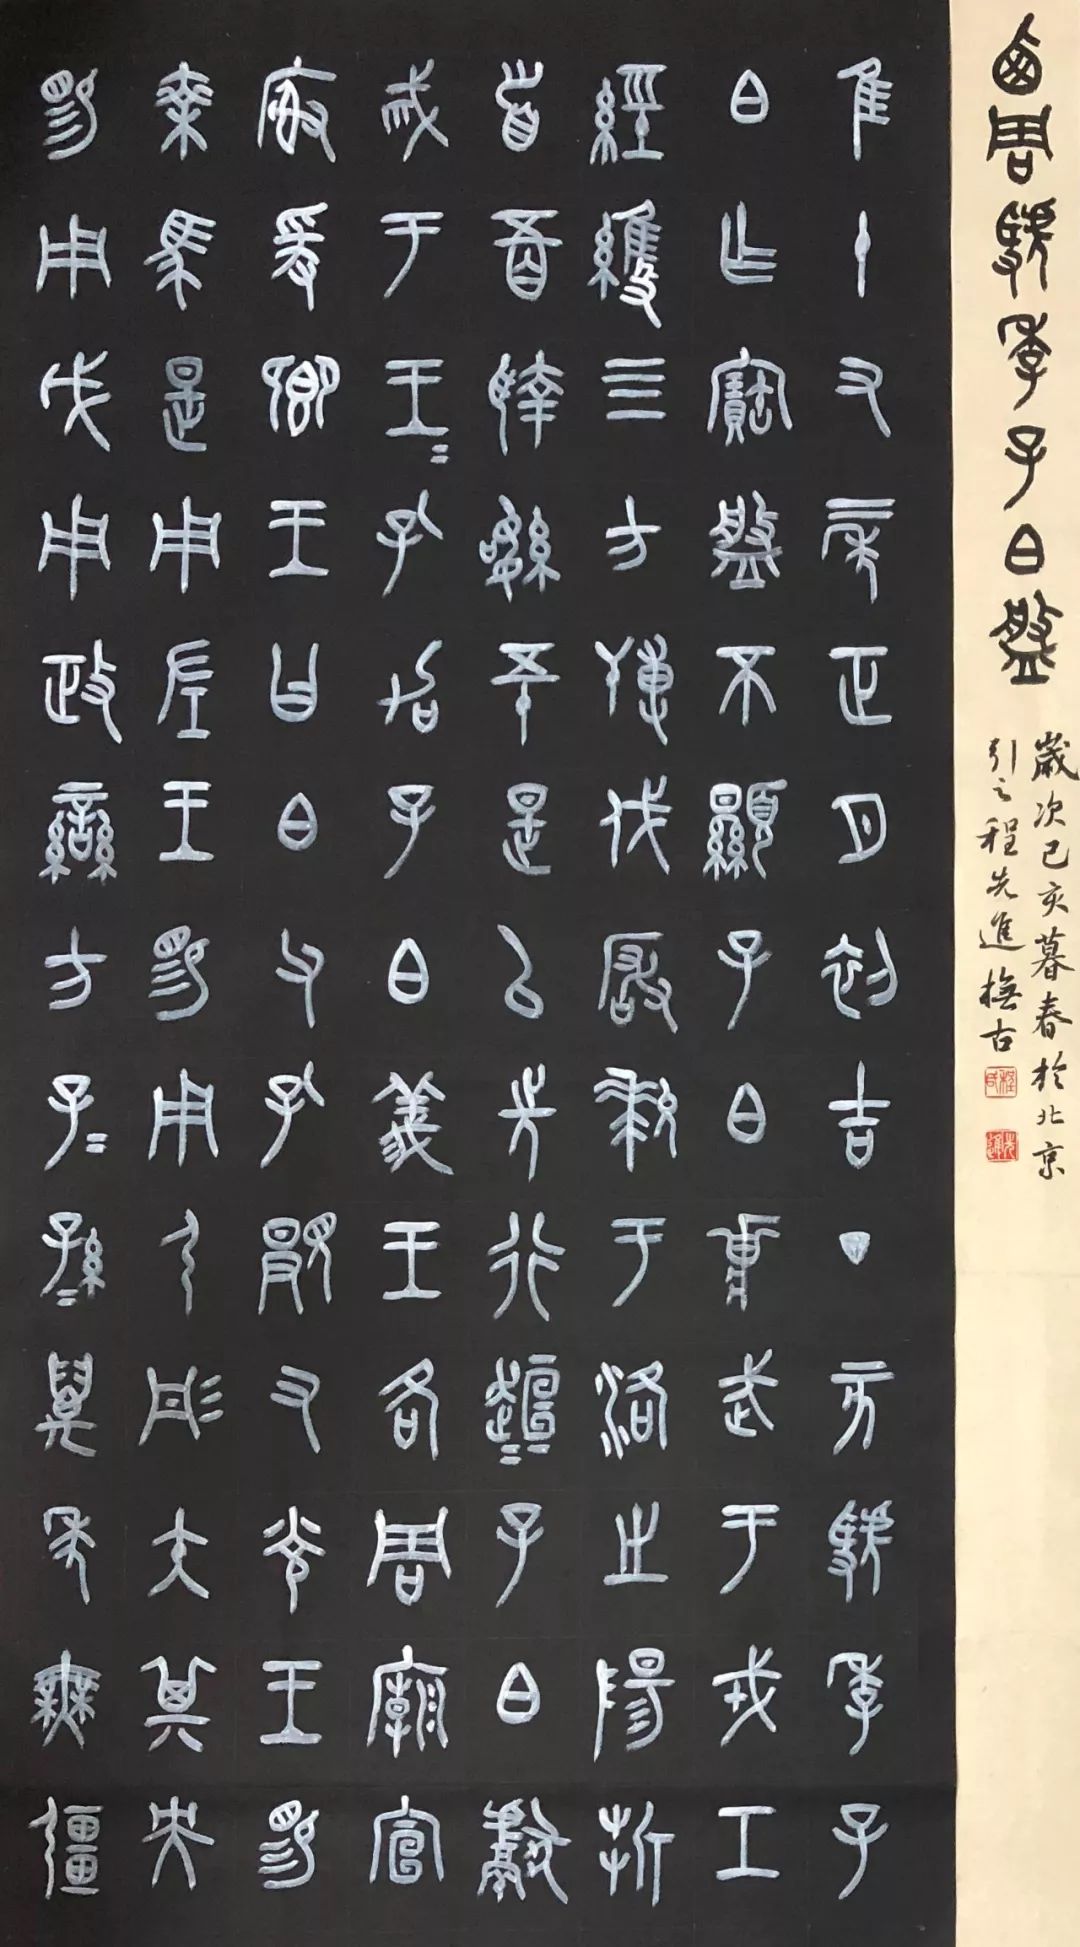 西周虢季子白盤
歲次己亥暮春於北京
引之程先進撫古
程氏
先進
隹十又二年正月初吉丁亥虢季子
白乍寶盤不顯子白壯武于戎工
經維四方搏伐玁狁于洛之陽折
首五百執訊五十是以先行趄趄子白獻
馘于王王孔加子白義王各周廟宣
榭爰卿王曰白父孔顯又光王賜
乘馬是用左王賜用弓彤矢其央
賜用戉用政蠻方子子孫孫萬年無疆